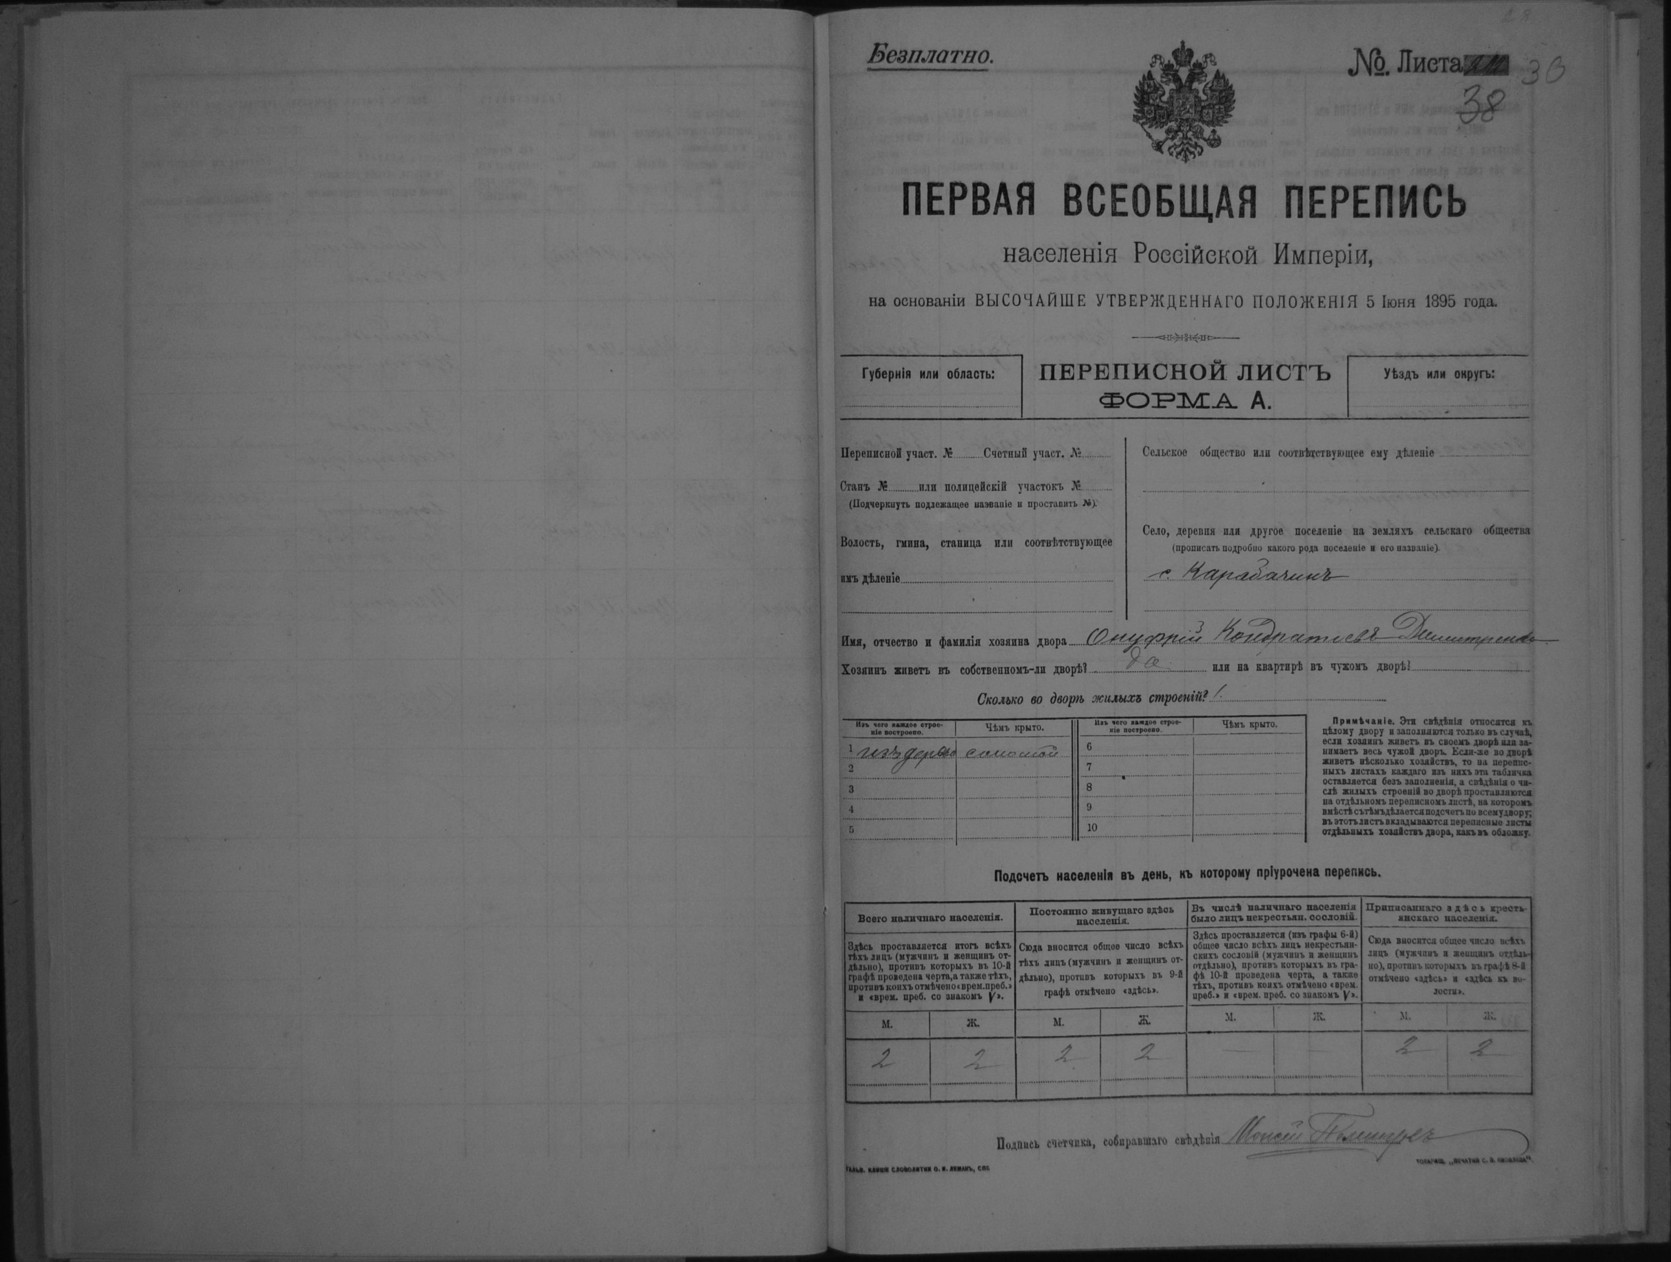 Безплатно.
№. Листа 30
38
ПЕРВАЯ ВСЕОБЩАЯ ПЕРЕПИСЬ
населенія Россійской Имперіи,
на основаніи ВЫСОЧАЙШЕ УТВЕРЖДЕННАГО ПОЛОЖЕНІЯ 5 Іюня 1895 года.
Губернія или область:
ПЕРЕПИСНОЙ ЛИСТЪ
ФОРМА А.
Уѣздъ или округъ:
Переписной участ. № Счетный участ. №
Станъ № или полицейскій участокъ №
(Подчеркнуть подлежащее названіе и проставить №).
Волость, гмина, станица или соотвѣтствующее
имъ дѣленіе
Сельское общество или соотвѣтствующее ему дѣленіе
Село, деревня или другое поселеніе на земляхъ сельскаго общества
(прописать подробно какого рода поселеніе и его названіе).
с. Карабачинъ
Имя, отчество и фамилія хозяина двора Онуфрій Кондратіевъ Димитренко
Хозяинъ живетъ въ собственномъ-ли дворѣ? да или на квартирѣ въ чужомъ дворѣ?
Сколько во дворѣ жилыхъ строеній? 1.
Изъ чего каждое строе-
ніе построено.
Чѣмъ крыто.
1 изъ дерева соломой
2
3
4
5
Изъ чего каждое строе-
ніе построено.
Чѣмъ крыто.
6
7
8
9
10
Примѣчаніе. Эти свѣдѣнія относятся къ
цѣлому двору и заполняются только въ случаѣ,
если хозяинъ живетъ въ своемъ дворѣ или за-
нимаетъ весь чужой дворъ. Если-же во дворѣ
живетъ нѣсколько хозяйствъ, то на перепис-
ныхъ листахъ каждаго изъ нихъ эта табличка
оставляется безъ заполненія, а свѣдѣнія о чи-
слѣ жилыхъ строеній во дворѣ проставляются
на отдѣльномъ переписномъ листѣ, на которомъ
вмѣстѣ съ тѣмъ дѣлается подсчетъ по всему двору;
въ этотъ листъ вкладываются переписные листы
отдѣльныхъ хозяйствъ двора, какъ въ обложку.
Подсчетъ населенія въ день, къ которому пріурочена перепись.
Всего наличнаго населенія.
Здѣсь проставляется итогъ всѣхъ
тѣхъ лицъ (мужчинъ и женщинъ от-
дѣльно), противъ которыхъ въ 10-й
графѣ проведена черта, а также тѣхъ,
противъ коихъ отмѣчено «врем. преб.»
и «врем. преб. со знакомъ V».
Постоянно живущаго здѣсь
населенія.
Сюда вносится общее число всѣхъ
тѣхъ лицъ (мужчинъ и женщинъ от-
дѣльно), противъ которыхъ въ 9-й
графѣ отмѣчено «здѣсь».
Въ числѣ наличнаго населенія
было лицъ некрестьян. сословій.
Здѣсь проставляется (изъ графы 6-й)
общее число всѣхъ лицъ некрестьян-
скихъ сословій (мужчинъ и женщинъ
отдѣльно), противъ которыхъ въ гра-
фѣ 10-й проведена черта, а также
тѣхъ, противъ коихъ отмѣчено «врем.
преб.» и «врем. преб. со знакомъ V».
Приписаннаго здѣсь кресть-
янскаго населенія.
Сюда вносится общее число всѣхъ
лицъ (мужчинъ и женщинъ отдѣль-
но), противъ которыхъ въ графѣ 8-й
отмѣчено «здѣсь» и «здѣсь къ во-
лости».
М. Ж. М. Ж. М. Ж. М. Ж.
2 2 2 2 — — 2 2
Подпись счетчика, собиравшаго свѣдѣнія Моисей